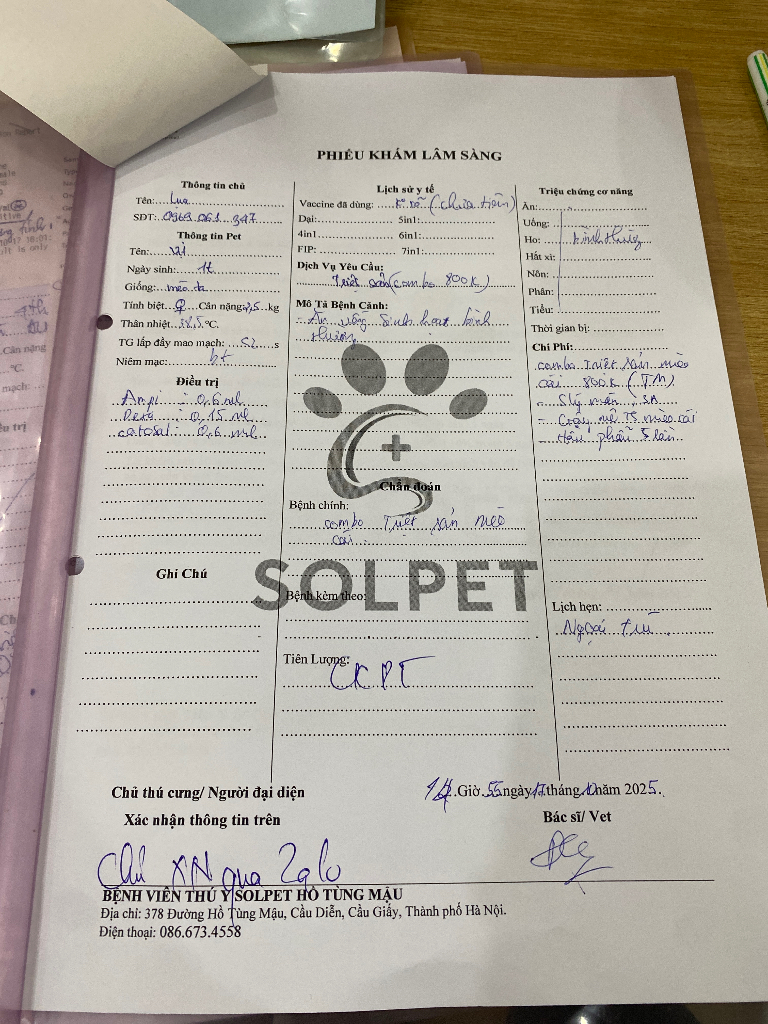 PHIẾU KHÁM LÂM SÀNG
Thông tin chủ
Tên: Lụa
SĐT: 0969 061 347
Thông tin Pet
Tên:
Ngày sinh: 1t
Giống: mèo ta
Tính biệt: ♀ Cân nặng: 2,5 kg
Thân nhiệt: 38,5 °C
TG lấp đầy mao mạch: <2 s
Niêm mạc: bt
Điều trị
Ampi : 0,6 ml
Dexa : 0,15 ml
catosal : 0,6 ml
Ghi Chú
Lịch sử y tế
Vaccine đã dùng: k rõ (chưa tiêm)
Dại: 5in1:
4in1 6in1:
FIP: 7in1:
Dịch Vụ Yêu Cầu:
Triệt sản (combo 800K)
Mô Tả Bệnh Cảnh:
- Ăn uống sinh hoạt bình
thường
Chẩn đoán
Bệnh chính:
combo Triệt sản mèo
cái
SOLPET
Bệnh kèm theo:
Tiên Lượng:
CKPT
Triệu chứng cơ năng
Ăn:
Uống:
Ho: bình thường
Hắt xì:
Nôn:
Phân:
Tiểu:
Thời gian bị:
Chi Phí:
combo triệt sản mèo
cái 800k (TM)
- SA
- mê TS mèo cái
- Hậu phẫu 5 lần
Lịch hẹn:
Ngoại trú
Chủ thú cưng/ Người đại diện
Xác nhận thông tin trên
Giờ 55 ngày 17 tháng 10 năm 2025.
Bác sĩ/ Vet
Chủ XN qua Zalo
BỆNH VIỆN THÚ Y SOLPET HỒ TÙNG MẬU
Địa chỉ: 378 Đường Hồ Tùng Mậu, Cầu Diễn, Cầu Giấy, Thành phố Hà Nội.
Điện thoại: 086.673.4558